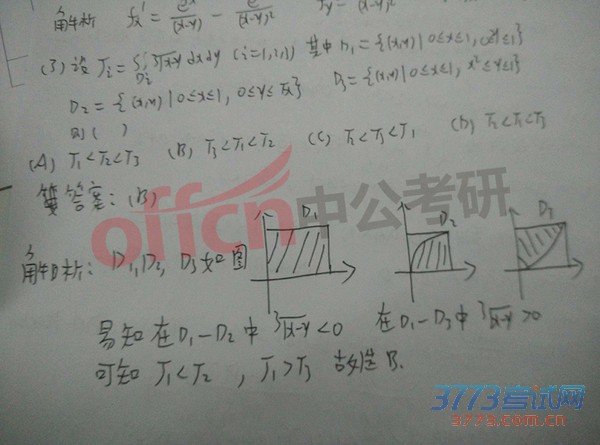 解析 fx' = e^x/(x-y) - e^x/(x-y)^2 fy' = (x-y)^2
(3) 设 Ji = ∬Di ∛x-y dxdy (i=1,2,3) 其中 D1 = {(x,y) | 0≤x≤1, 0≤y≤1}
D2 = {(x,y) | 0≤x≤1, 0≤y≤√x} D3 = {(x,y) | 0≤x≤1, x²≤y≤1}
则( )
(A) J1<J2<J3 (B) J3<J1<J2 (C) J2<J3<J1 (D) J2<J1<J3
答案:(B)
offcn中公考研
D1 D2 D3
解析: D1, D2, D3 如图
易知 在 D1-D2 中 ∛x-y <0 在 D1-D3 中 ∛x-y >0
可知 J1<J2 , J1>J3 故选 B.
3773考试网